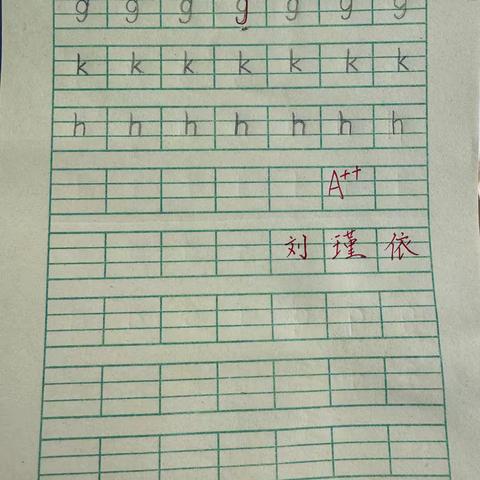 g g g g g g g
k k k k k k k
h h h h h h h
A++
刘瑾依